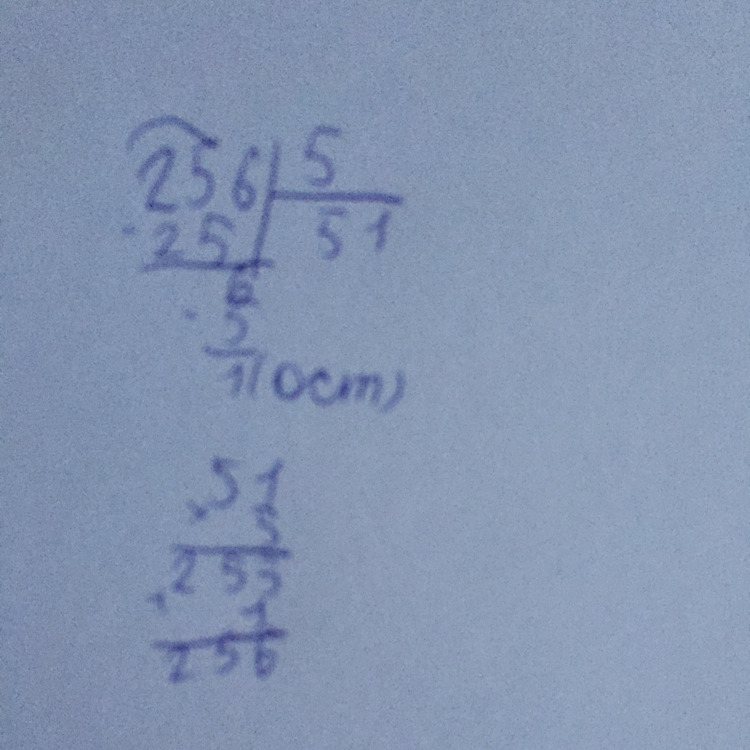 256 5
- 25 51
6
- 5
1 (ост)
51
× 5
255
+ 1
256